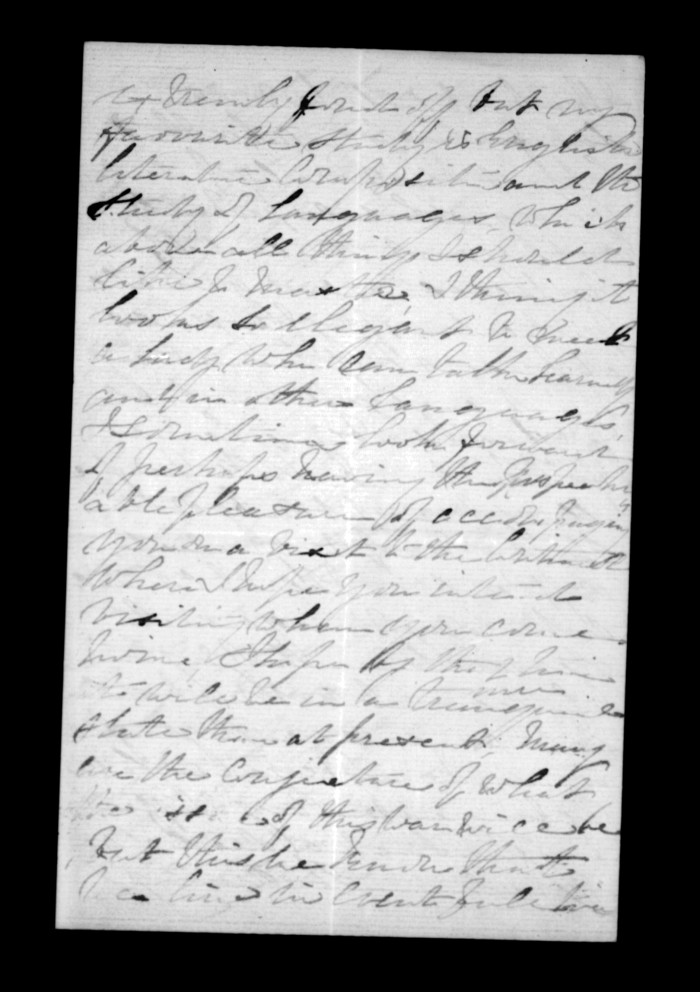 extremely fond off but my
favourite study is English
literature composition and the
study of Languages, which
above all things I should
like to master, I think it
looks so elegant to meet
a lady who can talk learnedly
and in other Languages,
I sometimes look forward
of perhaps having the
pleasure of accompanying
you on a visit to the
where I hope you intend
visiting when you come
home, I hope by that time
it will be in a more tranquil
state than at present, many
are the Conjecture of what
the issue of this war will be
But this we know that
we live in Eventful